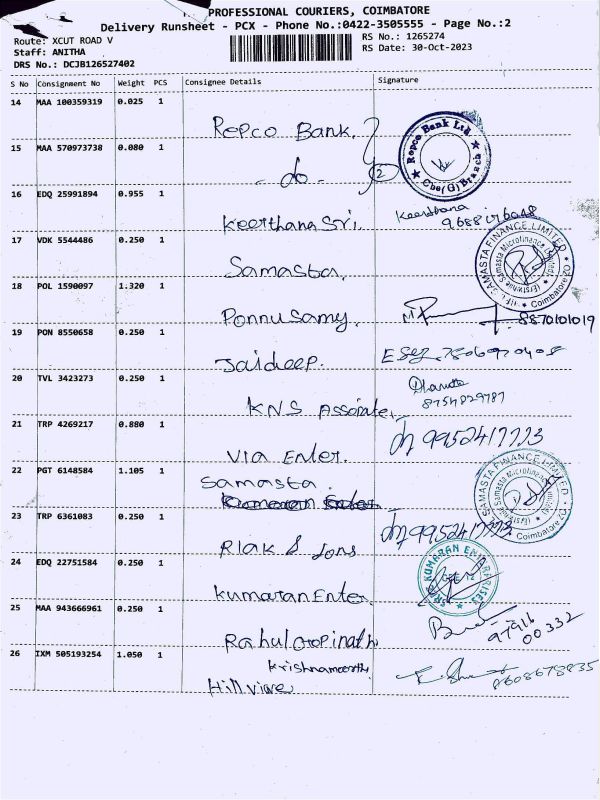 PROFESSIONAL COURIERS, COIMBATORE
Delivery Runsheet - PCX - Phone No.:0422-3505555 - Page No.:2
Route: XCUT ROAD V
RS No.: 1265274
Staff: ANITHA
RS Date: 30-Oct-2023
DRS No.: DCJB126527402
S No Consignment No Weight PCS Consignee Details Signature
14 MAA 100359319 0.025 1
Repco Bank.
Repco Bank Ltd
Cbe(G)Branch
15 MAA 570973738 0.080 1
- do - 2
16 EDQ 25991894 0.955 1
Keerthana Sri. Keerthana
17 VDK 5544486 0.250 1
Samasta.
SAMASTA FINANCE LIMITED
(Erstwhile Samasta Microfinance Limited)
Coimbatore
18 POL 1590097 1.320 1
Ponnu Samy. 8870101019
19 PON 8550658 0.250 1
Jaideep.
20 TVL 3423273 0.250 1
KNS Associate,
8754829787
21 TRP 4269217 0.880 1
Via Enter.
22 PGT 6148584 1.105 1
Samasta.
SAMASTA FINANCE LIMITED
(Erstwhile Samasta Microfinance Limited)
Coimbatore
23 TRP 6361083 0.250 1
24 EDQ 22751584 0.250 1
Kumaran Enter
SRI KUMARAN ENTERPRISES
25 MAA 943666961 0.250 1
Rahul Gopinath
97916
00332
26 IXM 505193254 1.050 1
Krishnamoorthy